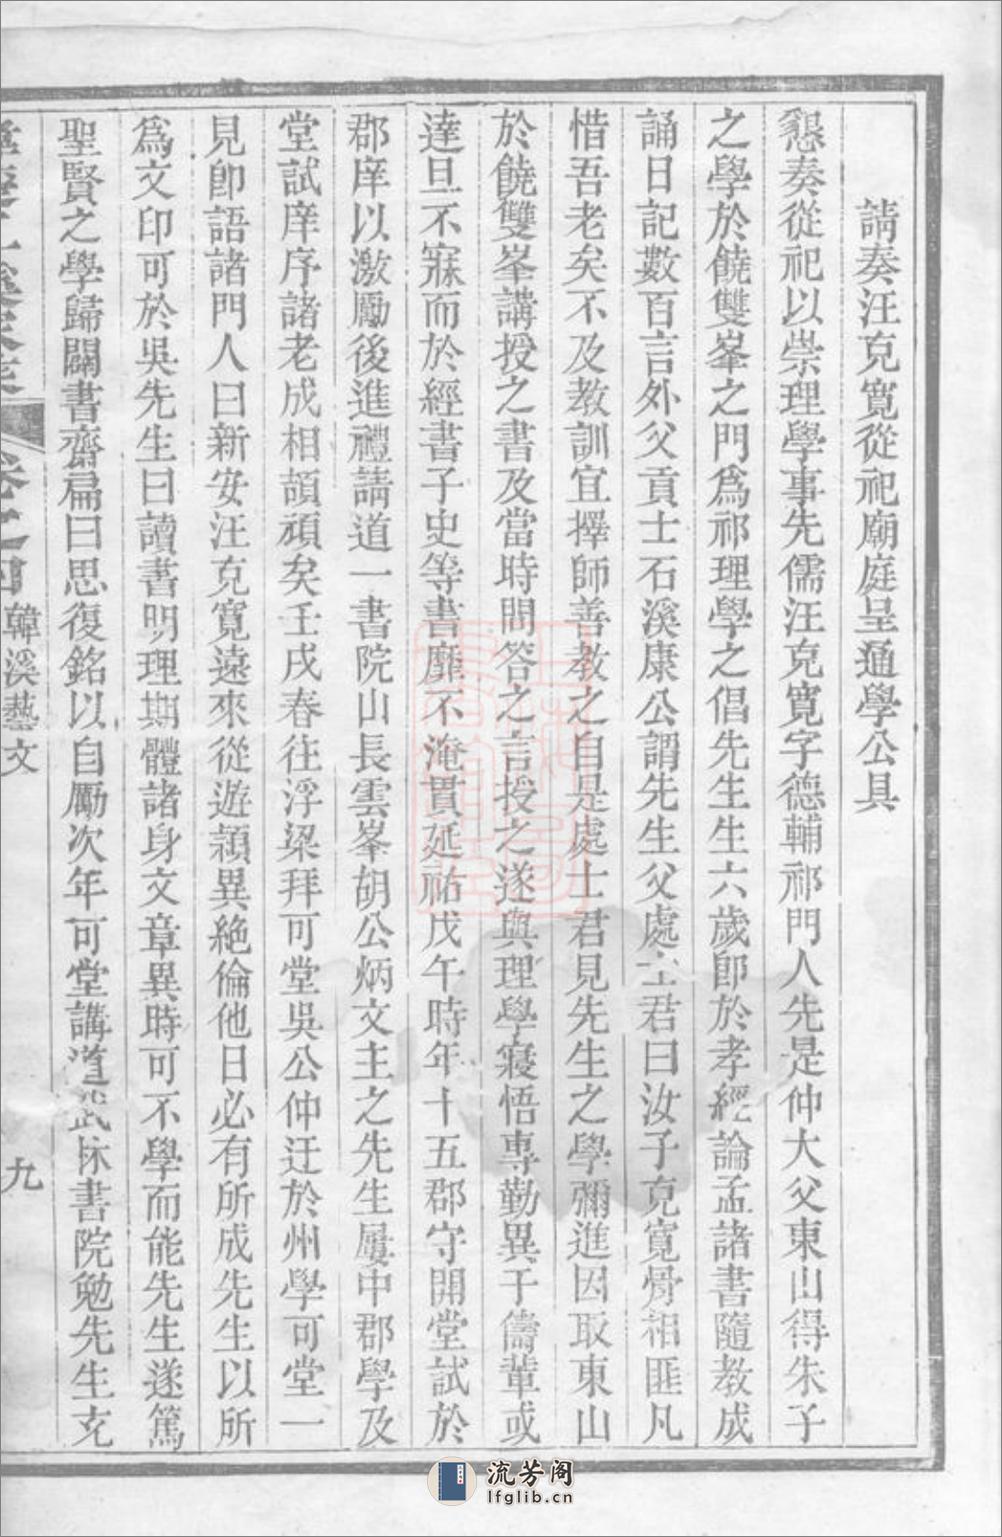 請奏汪克寬從祀廟庭呈通學公具
懇奏從祀以崇理學事先儒汪克寬字德輔祁門人先是仲大父東山得朱子
之學於饒雙峯之門爲祁理學之倡先生生六歲卽於孝經論孟諸書隨教成
誦日記數百言外父貢士石溪康公謂先生父處士君曰汝子克寬骨相匪凡
惜吾老矣不及教訓宜擇師善教之自是處士君見先生之學彌進因取東山
於饒雙峯講授之書及當時問答之言授之遂與理學寢悟專勤異于儔輩或
達旦不寐而於經書子史等書靡不淹貫延祐戊午時年十五郡守開堂試於
郡庠以激勵後進禮請道一書院山長雲峯胡公炳文主之先生屢中郡學及
堂試庠序諸老成相頡頏矣壬戌春往浮梁拜可堂吳公仲迂於州學可堂一
見卽語諸門人曰新安汪克寬遠來從遊穎異絶倫他日必有所成先生以所
爲文印可於吳先生曰讀書明理期體諸身文章異時可不學而能先生遂篤
聖賢之學歸闢書齋扁曰思復銘以自勵次年可堂講道武林書院勉先生克
卷之四 韓溪藝文 九
流芳阁
lfglib.cn